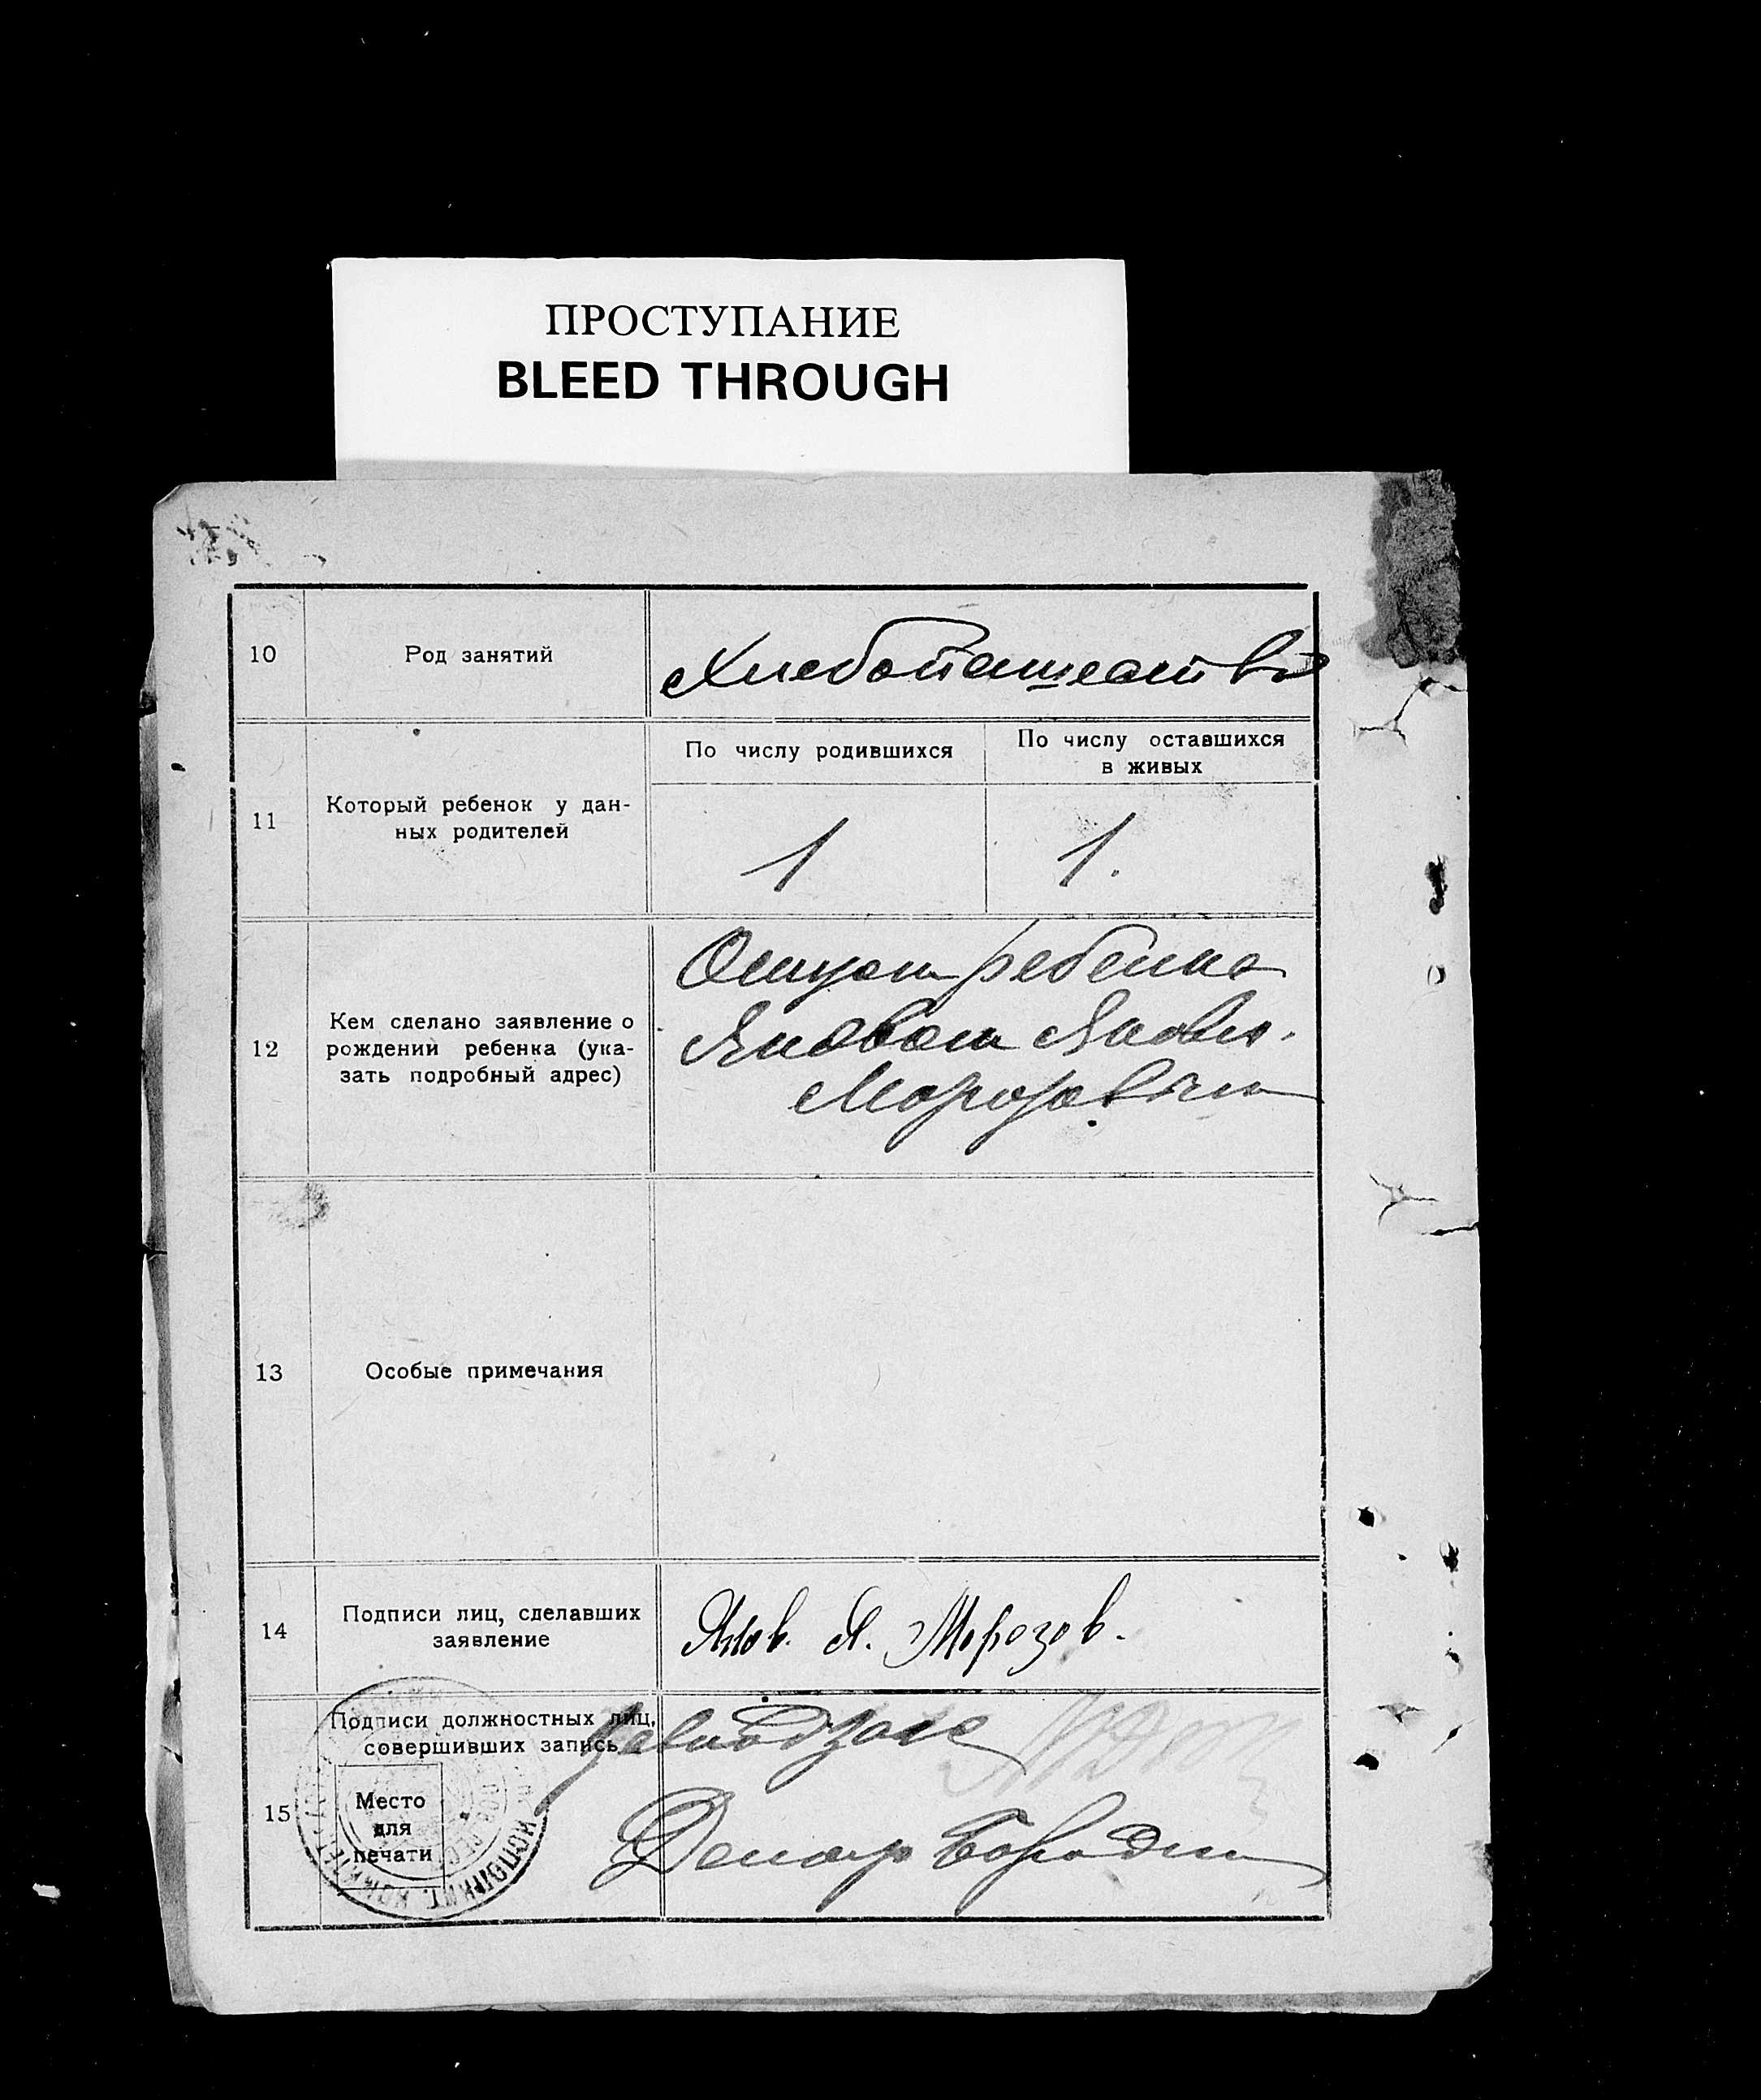 ПРОСТУПАНИЕ
BLEED THROUGH
10
Род занятий
Хлебопашество
11
Который ребенок у дан-
ных родителей
По числу родившихся
По числу оставшихся
в живых
1
1.
12
Кем сделано заявление о
рождении ребенка (ука-
зать подробный адрес)
Отцом ребенка
Яковом Яковл.
Морозовым
13
Особые примечания
14
Подписи лиц, сделавших
заявление
Яков. Я. Морозов.
15
Подписи должностных лиц,
совершивших запись
Место
для
печати